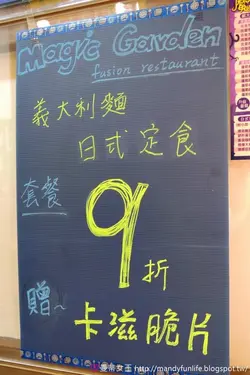 Magic Garden
fusion restaurant
義大利麵
日式定食
套餐
9折
贈~
卡滋脆片
http://mandyfunlife.blogspot.tw/